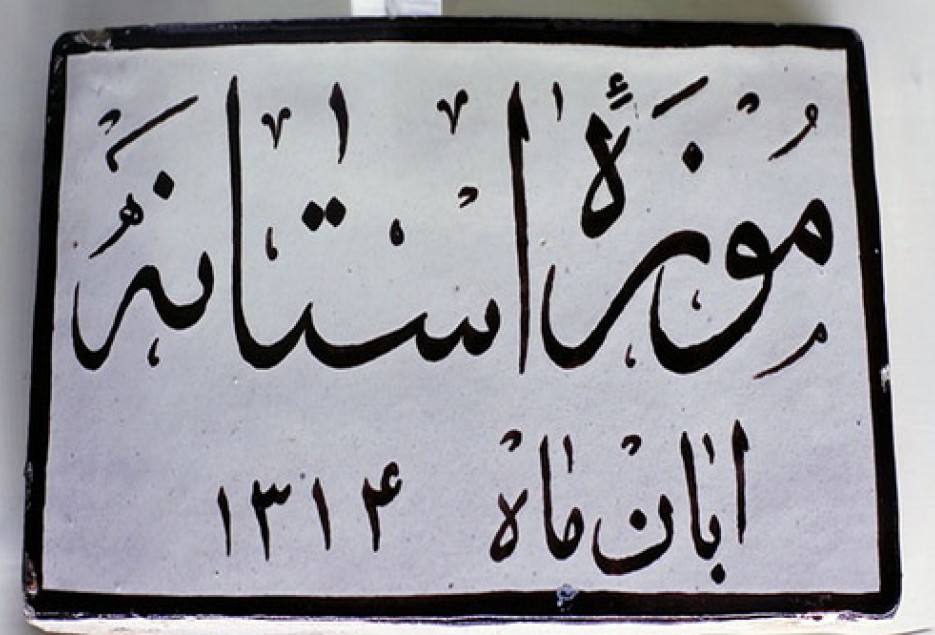 موزهٔ استانه
ابان ماه ۱۳۱۴